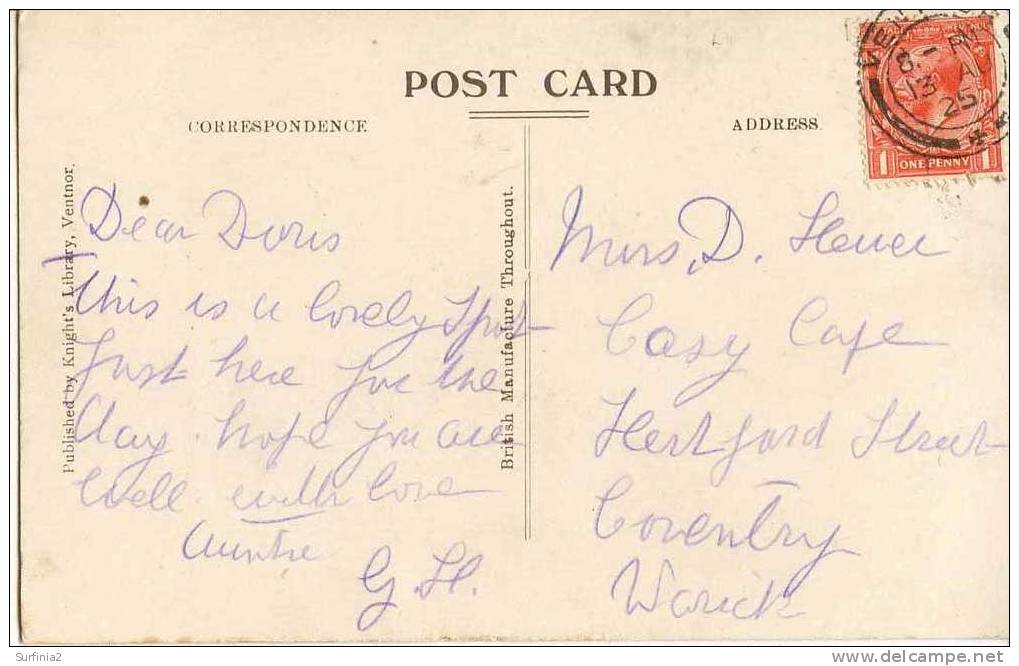 POST CARD
CORRESPONDENCE
ADDRESS.
Published by Knight's Library, Ventnor.
British Manufacture Throughout.
Dear Doris
This is a lovely spot
Just here for the
day. hope you are
well. with love
Auntie
G. H.
Mrs, D.
Cosy Cafe
Hertford Street
Coventry
Warick
1 PM
13 AU
25
1 ONE PENNY 1
Surfinia2
www.delcampe.net